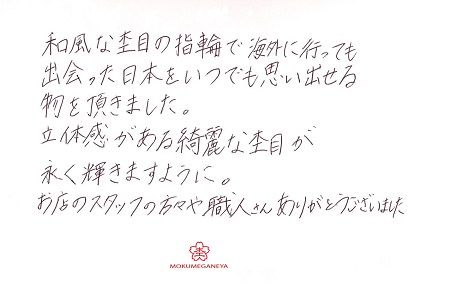 和風な杢目の指輪で海外に行っても
出会った日本をいつでも思い出せる
物を頂きました。
立体感がある綺麗な杢目が
永く輝きますように。
お店のスタッフの方々や職人さんありがとうございました
MOKUMEGANEYA